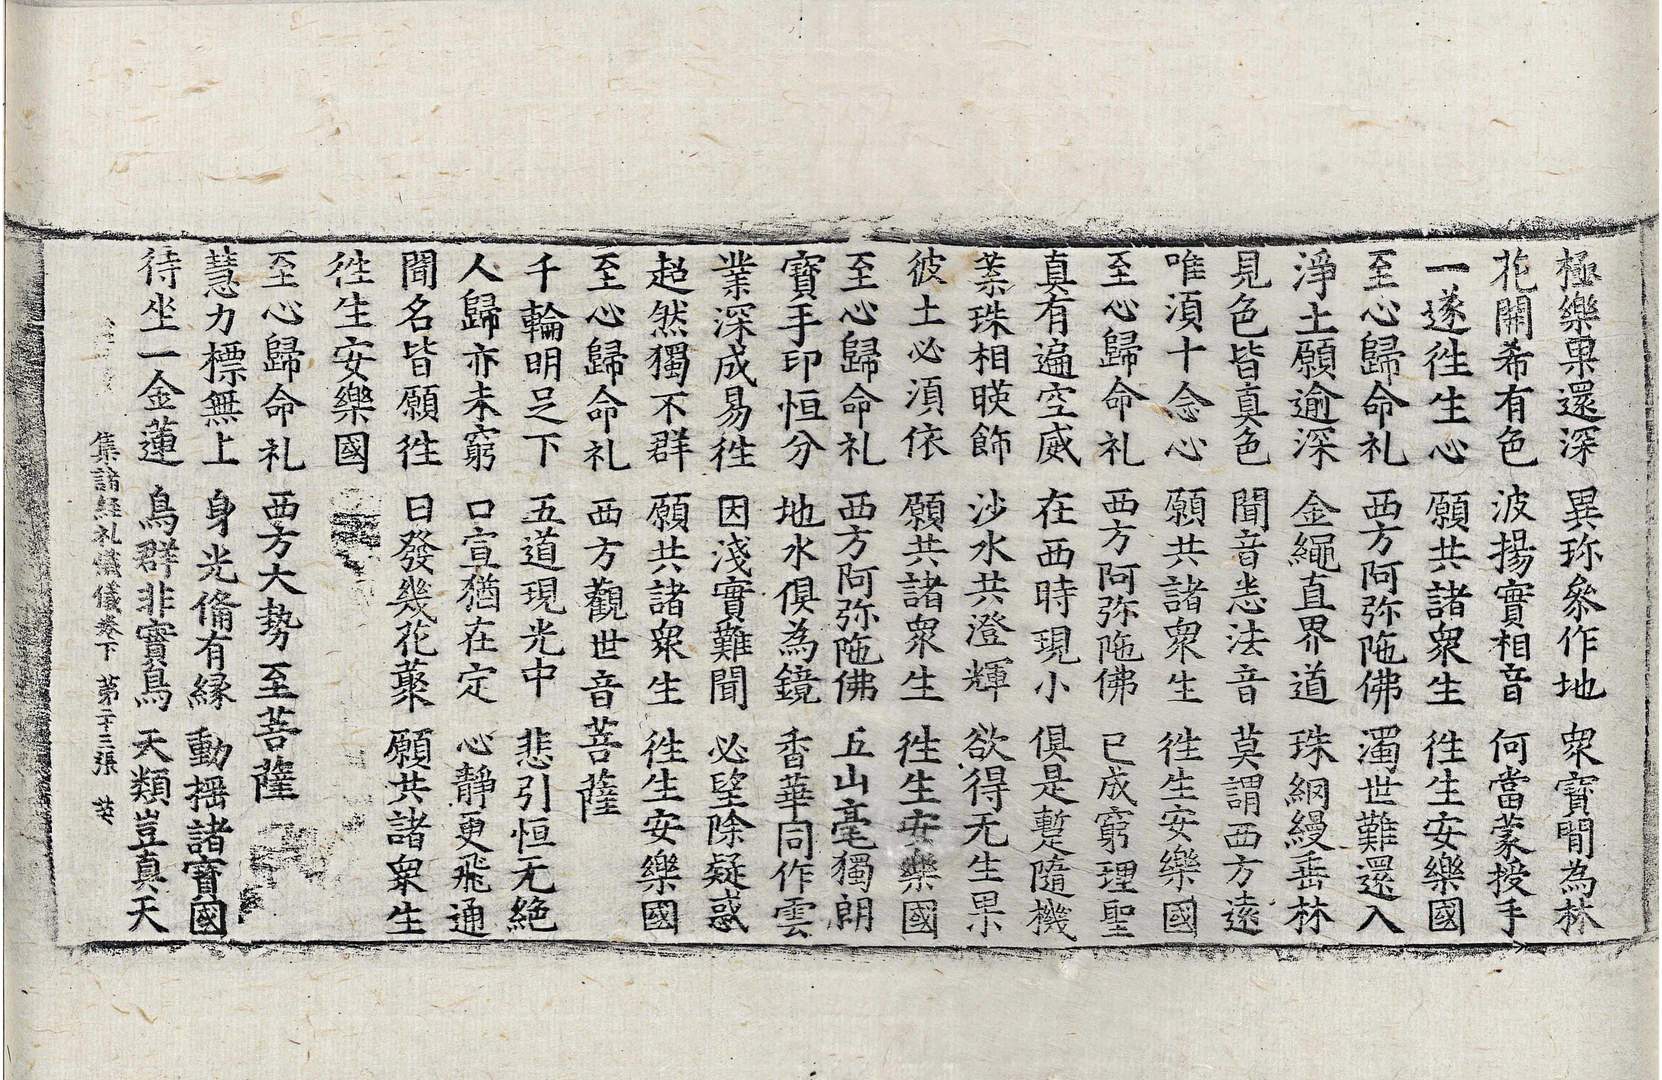 極樂果還深　異珎參作地　衆寶間為林
花開希有色　波揚實相音　何當蒙授手
一遂徃生心　願共諸衆生　徃生安樂國
至心歸命礼　西方阿弥陁佛　濁世難還入
淨土願逾深　金繩直界道　珠網縵垂林
見色皆真色　聞音悉法音　莫謂西方遠
唯湏十念心　願共諸衆生　徃生安樂國
至心歸命礼　西方阿弥陁佛　已成窮理聖
真有遍空威　在西時現小　俱是蹔隨機
葉珠相暎飾　沙水共澄輝　欲得无生果
彼土必湏依　願共諸衆生　徃生安樂國
至心歸命礼　西方阿弥陁佛　五山毫獨朗
寶手印恒分　地水俱為鏡　香華同作雲
業深成易徃　因淺實難聞　必望除疑惑
超然獨不群　願共諸衆生　徃生安樂國
至心歸命礼　西方觀世音菩薩
千輪明足下　五道現光中　悲引恒无絶
人歸亦未窮　口宣猶在定　心靜更飛通
聞名皆願徃　日發幾花藂　願共諸衆生
徃生安樂國
至心歸命礼　西方大勢至菩薩
慧力標無上　身光俻有緣　動揺諸寶國
待坐一金蓮　鳥群非實鳥　天類豈真天
集諸経礼懺儀卷下　第二十三張　英